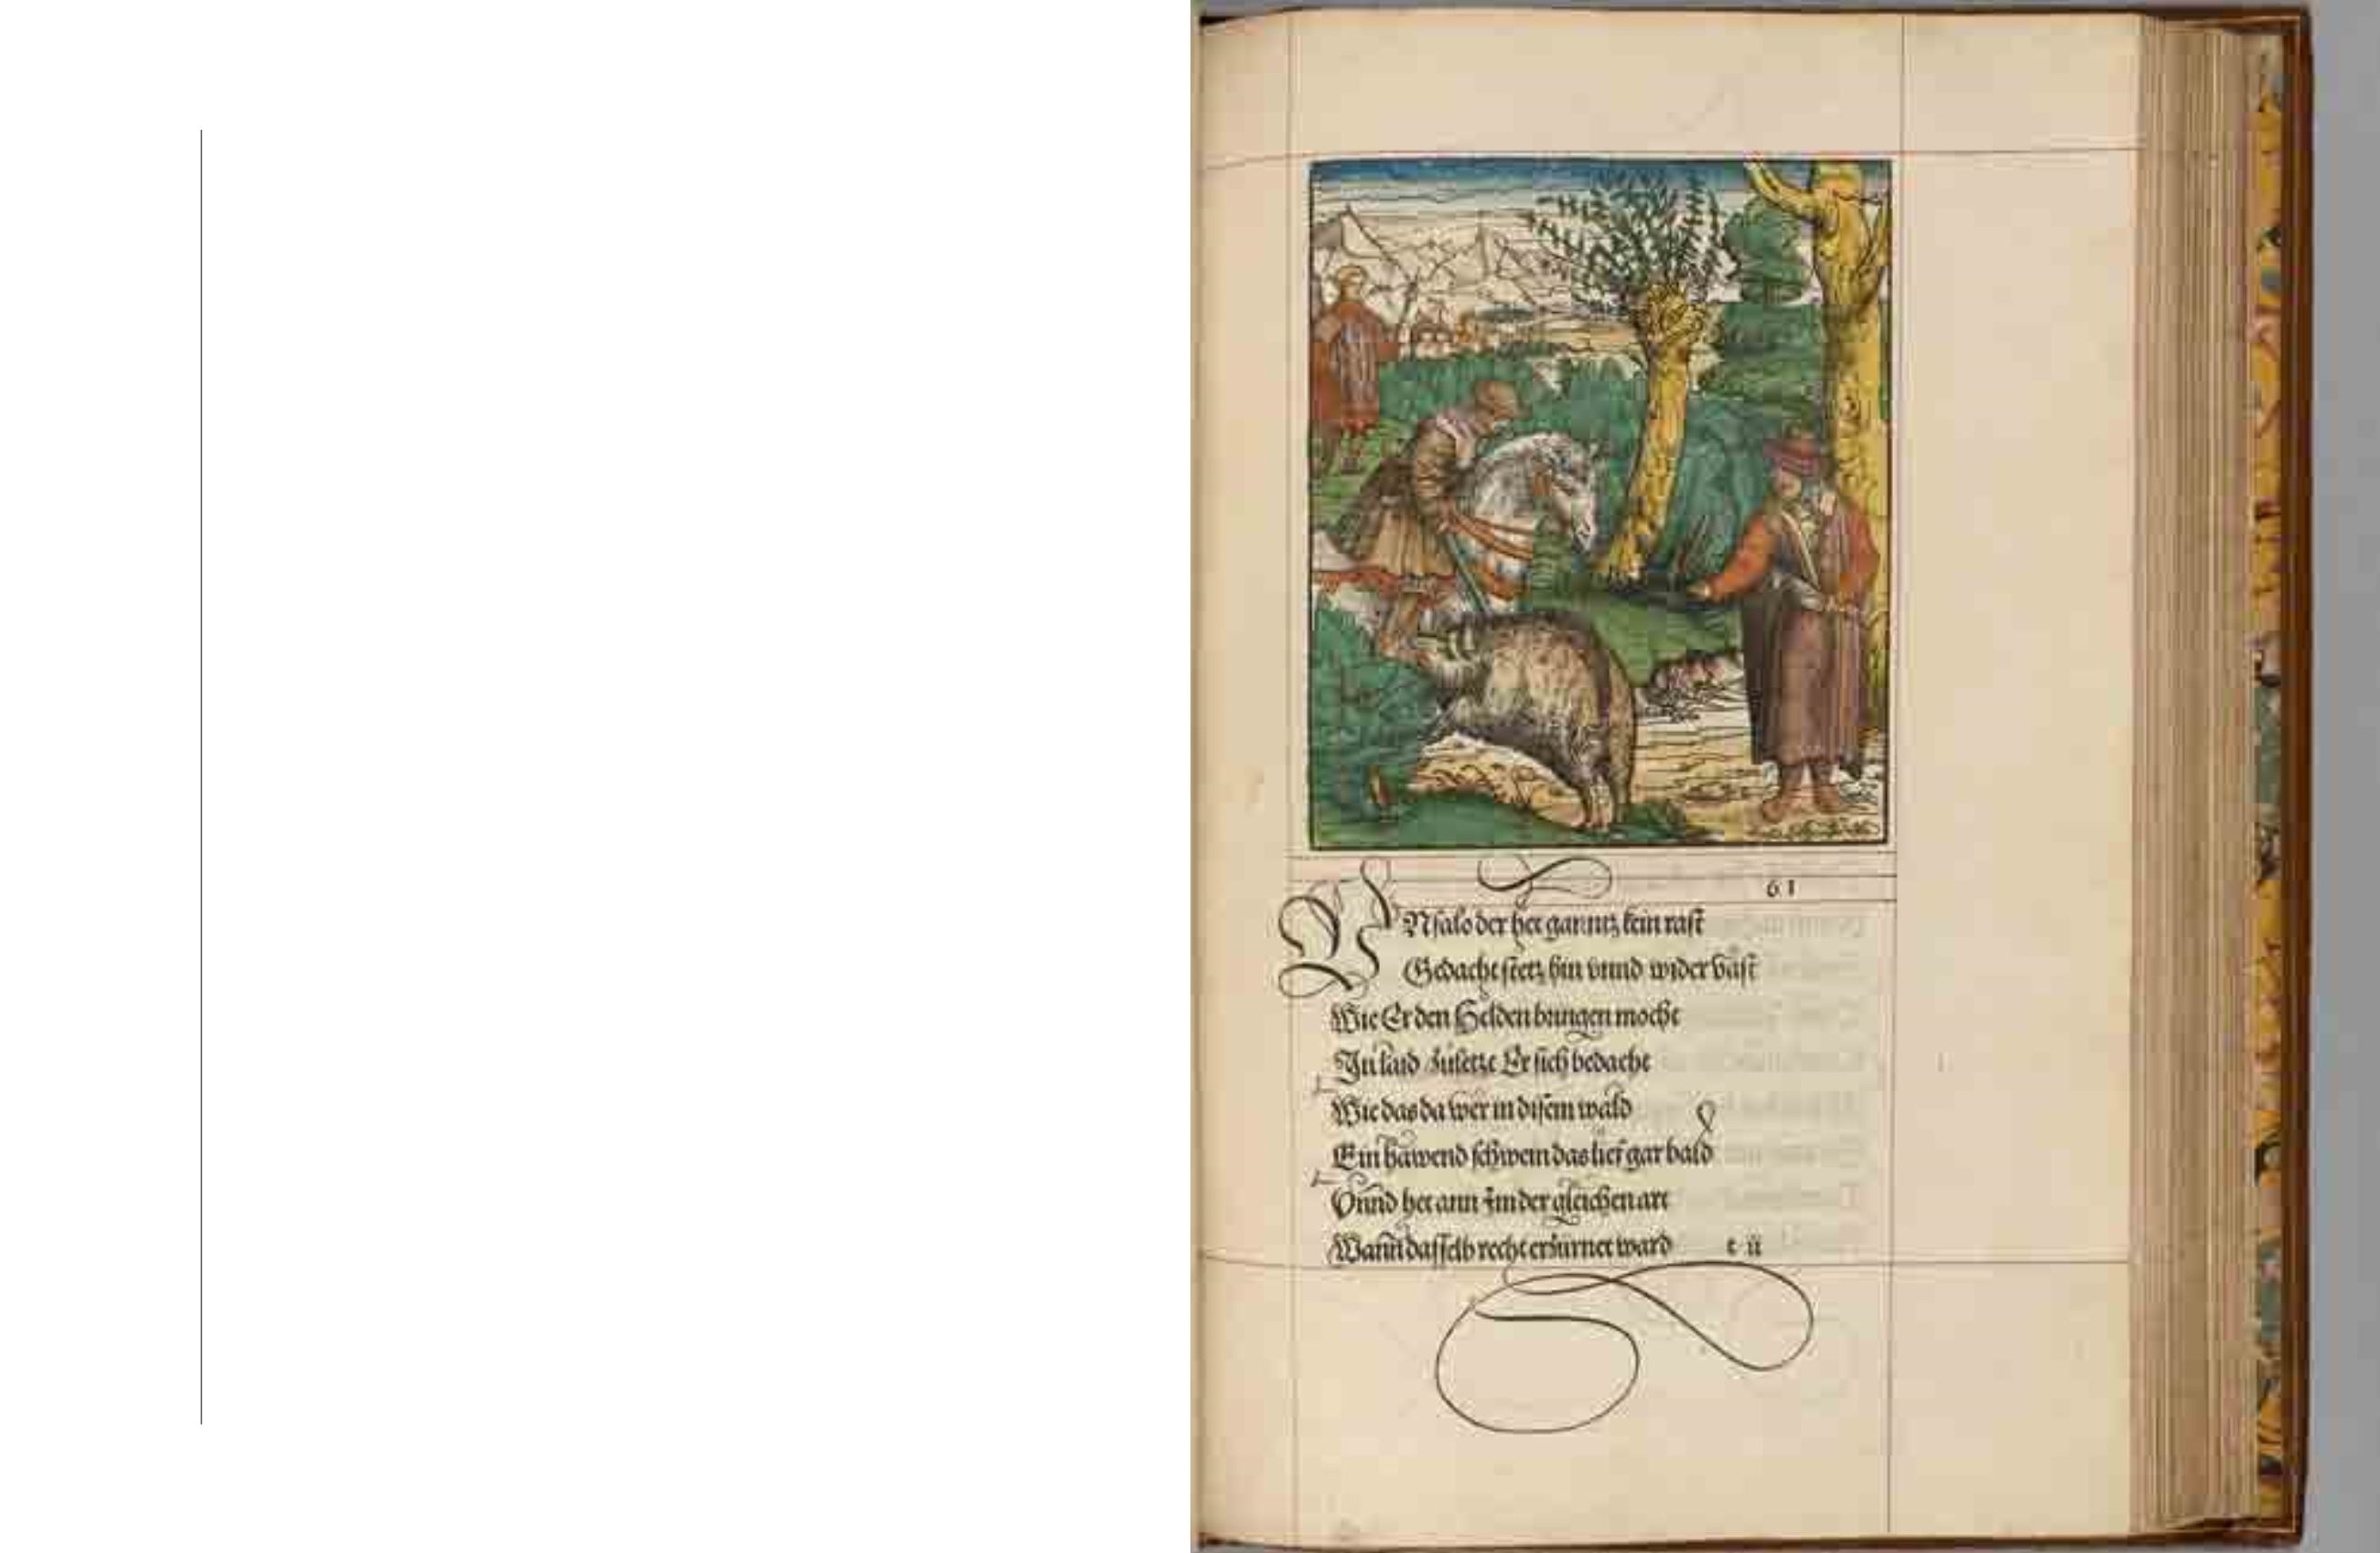 61
VNfalo der het gar nitz kein rast
Gedacht stetz hin vnnd wider vast
Wie Er den Helden bringen mocht
In laid Zuletzt Er sich bedacht
Wie das da wer in disem wald
Ein hawend schwein das lief gar bald
Vnnd het ann Im der gleichen art
Wann dasselb recht erzurnet ward t ii